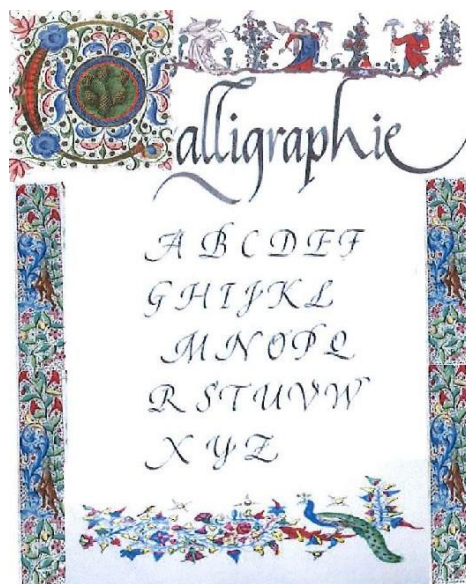 Calligraphie
A B C D E F
G H I J K L
M N O P Q
R S T U V W
X Y Z